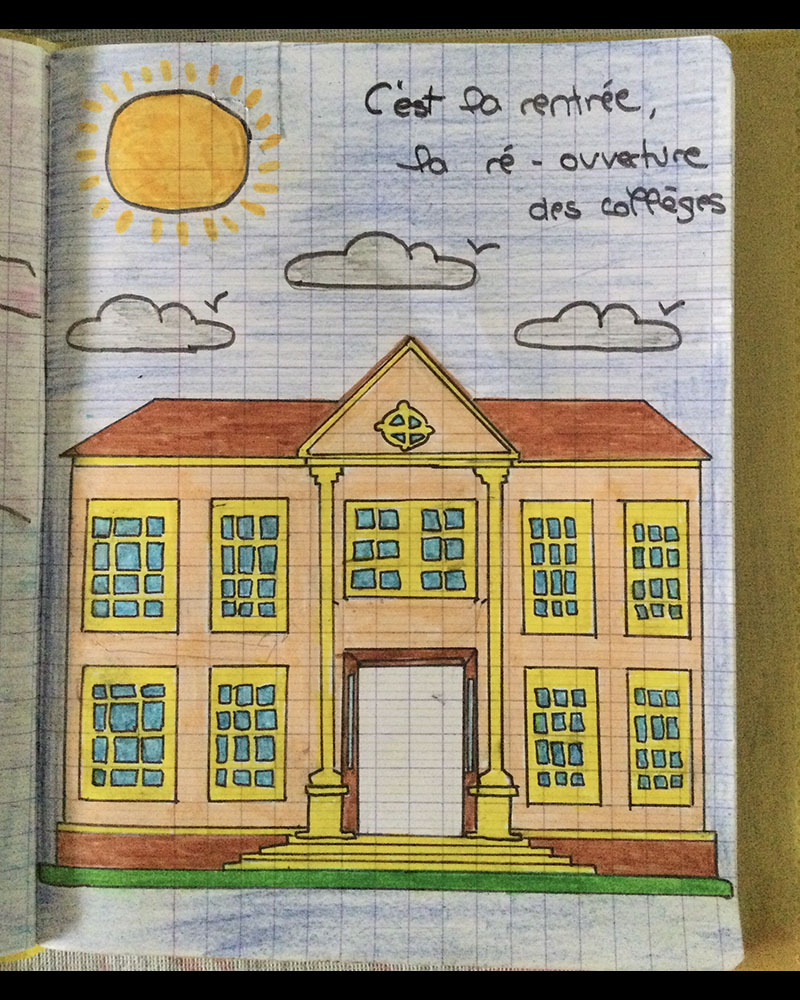 C'est la rentrée,
la ré - ouverture
des collèges